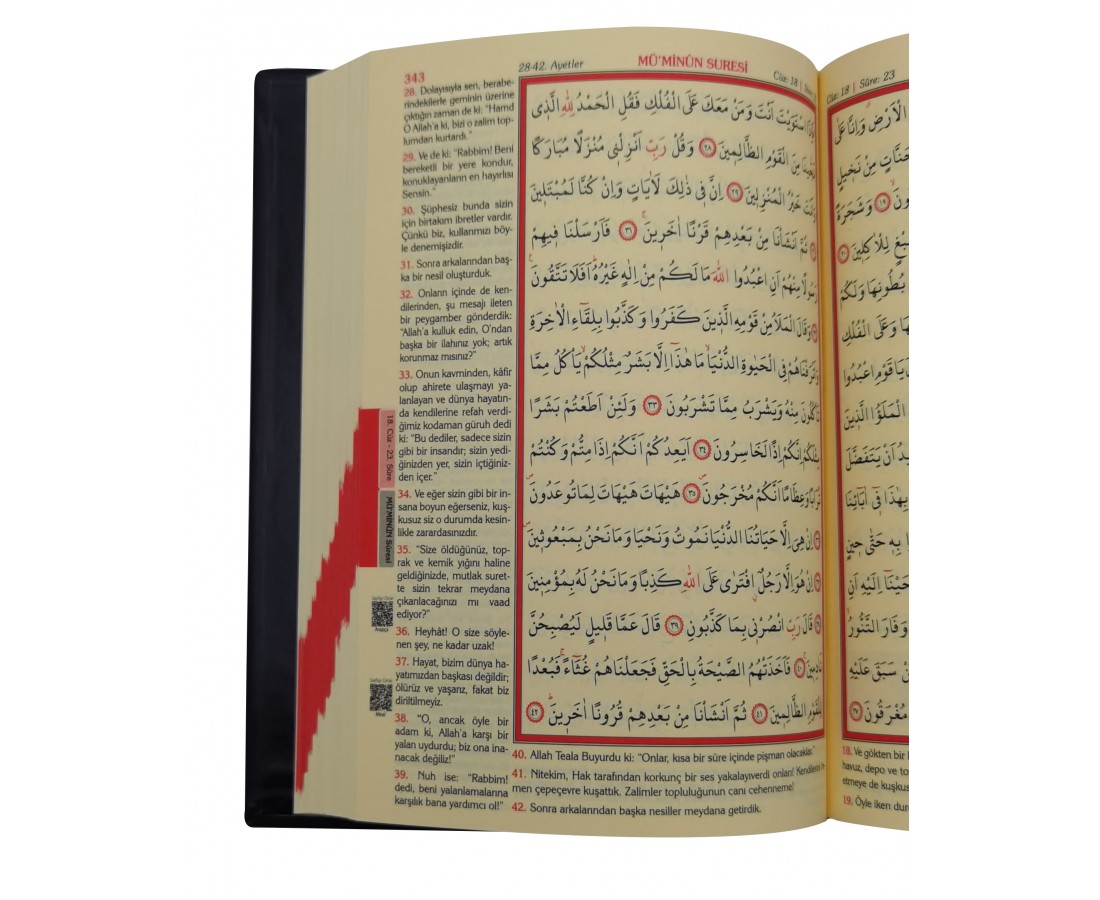 343
28-42. Ayetler
MÜ'MİNÛN SURESİ
Cüz: 18 |
28. Dolayısıyla sen, berabe-
rindekilerle geminin üzerine
çıktığın zaman de ki: "Hamd
O Allah'a ki, bizi o zalim top-
lumdan kurtardı."
29. Ve de ki: "Rabbim! Beni
bereketli bir yere kondur,
konuklayanların en hayırlısı
Sensin."
30. Şüphesiz bunda sizin
için birtakım ibretler vardır.
Çünkü biz, kullarımızı böy-
le denemişizdir.
31. Sonra arkalarından baş-
ka bir nesil oluşturduk.
32. Onların içinde de ken-
dilerinden, şu mesajı ileten
bir peygamber gönderdik:
"Allah'a kulluk edin, O'ndan
başka bir ilahınız yok; artık
korunmaz mısınız?"
33. Onun kavminden, kâfir
olup ahirete ulaşmayı ya-
lanlayan ve dünya hayatın-
da kendilerine refah verdi-
ğimiz kodaman güruh dedi
ki: "Bu dediler, sadece sizin
gibi bir insandır; sizin yedi-
ğinizden yer, sizin içtiğiniz-
den içer."
34. Ve eğer sizin gibi bir in-
sana boyun eğerseniz, kuş-
kusuz siz o durumda kesin-
likle zarardasınızdır.
35. "Size öldüğünüz, top-
rak ve kemik yığını haline
geldiğinizde, mutlak suret-
te sizin tekrar meydana
çıkarılacağınızı mı vaad
ediyor?"
36. Heyhât! O size söyle-
nen şey, ne kadar uzak!
37. Hayat, bizim dünya ha-
yatımızdan başkası değildir;
ölürüz ve yaşarız, fakat biz
diriltilmeyiz.
38. "O, ancak öyle bir
adam ki, Allah'a karşı bir
yalan uydurdu; biz ona ina-
nacak değiliz!"
39. Nuh ise: "Rabbim!
dedi, beni yalanlamalarına
karşılık bana yardımcı ol!"
18. Cüz - 23. Sûre
MÜ'MİNÛN Sûresi
اسْتَوَيْتَ اَنْتَ وَمَنْ مَعَكَ عَلَى الْفُلْكِ فَقُلِ الْحَمْدُ لِلّٰهِ الَّذٖى
مِنَ الْقَوْمِ الظَّالِمٖينَ ﴿٢٨﴾ وَقُلْ رَبِّ اَنْزِلْنٖى مُنْزَلًا مُبَارَكًا
خَيْرُ الْمُنْزِلٖينَ ﴿٢٩﴾ اِنَّ فٖى ذٰلِكَ لَاٰيَاتٍ وَاِنْ كُنَّا لَمُبْتَلٖينَ
ثُمَّ اَنْشَأْنَا مِنْ بَعْدِهِمْ قَرْنًا اٰخَرٖينَ ﴿٣١﴾ فَاَرْسَلْنَا فٖيهِمْ
رَسُولًا مِنْهُمْ اَنِ اعْبُدُوا اللّٰهَ مَا لَكُمْ مِنْ اِلٰهٍ غَيْرُهُ اَفَلَا تَتَّقُونَ
وَقَالَ الْمَلَاُ مِنْ قَوْمِهِ الَّذٖينَ كَفَرُوا وَكَذَّبُوا بِلِقَٓاءِ الْاٰخِرَةِ
فِى الْحَيٰوةِ الدُّنْيَا مَا هٰذَٓا اِلَّا بَشَرٌ مِثْلُكُمْ يَأْكُلُ مِمَّا
تَأْكُلُونَ مِنْهُ وَيَشْرَبُ مِمَّا تَشْرَبُونَ ﴿٣٣﴾ وَلَئِنْ اَطَعْتُمْ بَشَرًا
مِثْلَكُمْ اِنَّكُمْ اِذًا لَخَاسِرُونَ ﴿٣٤﴾ اَيَعِدُكُمْ اَنَّكُمْ اِذَا مِتُّمْ وَكُنْتُمْ
تُرَابًا وَعِظَامًا اَنَّكُمْ مُخْرَجُونَ ﴿٣٥﴾ هَيْهَاتَ هَيْهَاتَ لِمَا تُوعَدُونَ
اِنْ هِىَ اِلَّا حَيَاتُنَا الدُّنْيَا نَمُوتُ وَنَحْيَا وَمَا نَحْنُ بِمَبْعُوثٖينَ
اِنْ هُوَ اِلَّا رَجُلٌ افْتَرٰى عَلَى اللّٰهِ كَذِبًا وَمَا نَحْنُ لَهُ بِمُؤْمِنٖينَ
قَالَ رَبِّ انْصُرْنٖى بِمَا كَذَّبُونِ ﴿٣٩﴾ قَالَ عَمَّا قَلٖيلٍ لَيُصْبِحُنَّ
نَادِمٖينَ ﴿٤٠﴾ فَاَخَذَتْهُمُ الصَّيْحَةُ بِالْحَقِّ فَجَعَلْنَاهُمْ غُثَٓاءً فَبُعْدًا
لِلْقَوْمِ الظَّالِمٖينَ ﴿٤١﴾ ثُمَّ اَنْشَأْنَا مِنْ بَعْدِهِمْ قُرُونًا اٰخَرٖينَ ﴿٤٢﴾
40. Allah Teala Buyurdu ki: "Onlar, kısa bir süre içinde pişman olacaklar."
41. Nitekim, Hak tarafından korkunç bir ses yakalayıverdi onları! Kendilerini he-
men çepeçevre kuşattık. Zalimler topluluğunun canı cehenneme!
42. Sonra arkalarından başka nesiller meydana getirdik.
Cüz: 18 | Sûre: 23
الْاَرْضِ وَاِنَّا عَلٰى
جَنَّاتٍ مِنْ نَخٖيلٍ
﴿١٩﴾ وَشَجَرَةً
لِلْاٰكِلٖينَ ﴿٢٠﴾
بُطُونِهَا وَلَكُمْ
وَعَلَى الْفُلْكِ
يَا قَوْمِ اعْبُدُوا
الْمَلَؤُا الَّذٖينَ
اَنْ يَتَفَضَّلَ
بِهٰذَا فٖٓى اٰبَٓائِنَا
بِهٖ حَتّٰى حٖينٍ
اِلَيْهِ اَنِ
وَفَارَ التَّنُّورُ
مَنْ سَبَقَ عَلَيْهِ
مُغْرَقُونَ ﴿٢٧﴾
18. Ve gökten bir
havuz, depo ve to
etmeye de kuşkus
19. Öyle iken